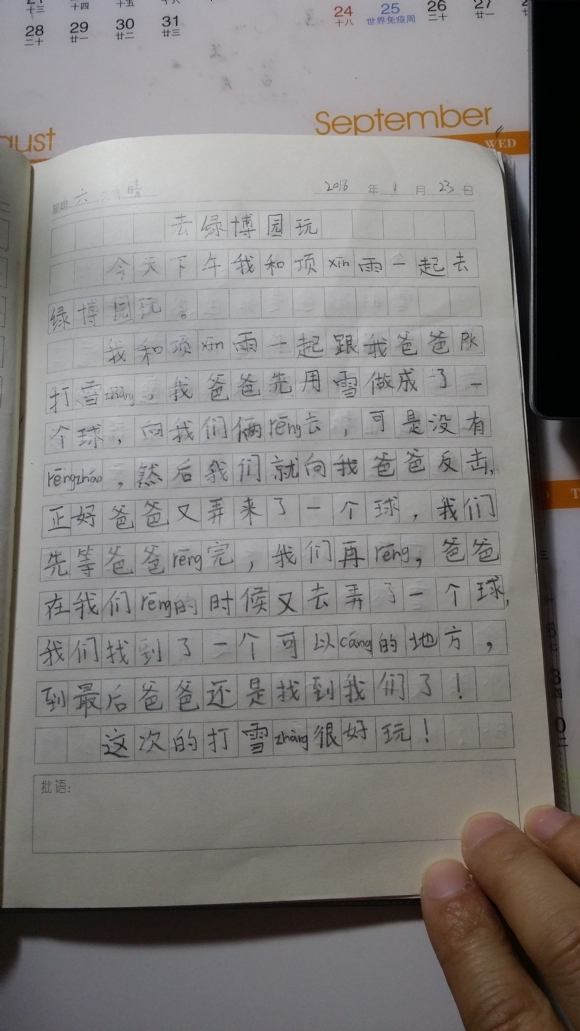 28 29 30 31
二十 廿一 廿二 廿三
24 25 26 27
十八 世界免疫周 二十 廿一
ust
September
WED
星期 六 晴 2016 年 1 月 23 日
去绿博园玩
今天下午我和项xīn雨一起去
绿博园玩。
我和项xīn雨一起跟我爸爸PK
打雪zhàng，我爸爸先用雪做成了一
个球，向我们俩rēng去，可是没有
rēngzháo，然后我们就向我爸爸反击，
正好爸爸又弄来了一个球，我们
先等爸爸rēng完，我们再rēng，爸爸
在我们rēng的时候又去弄了一个球，
我们找到了一个可以cáng的地方，
到最后爸爸还是找到我们了！
这次的打雪zhàng很好玩！
批语：